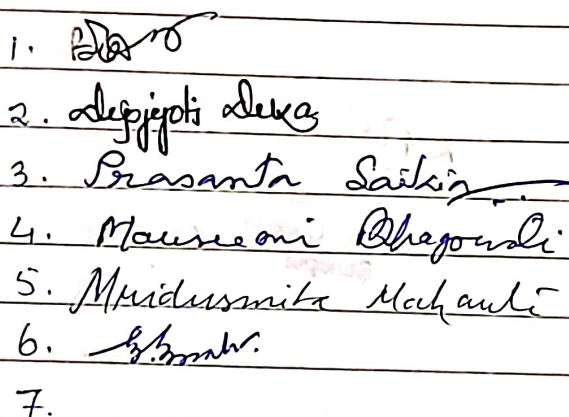 1.
2. Depjyoti Deka
3. Prasanta Saikia
4. Mousumi Bhagowati
5. Mridusmita Mahanti
6.
7.